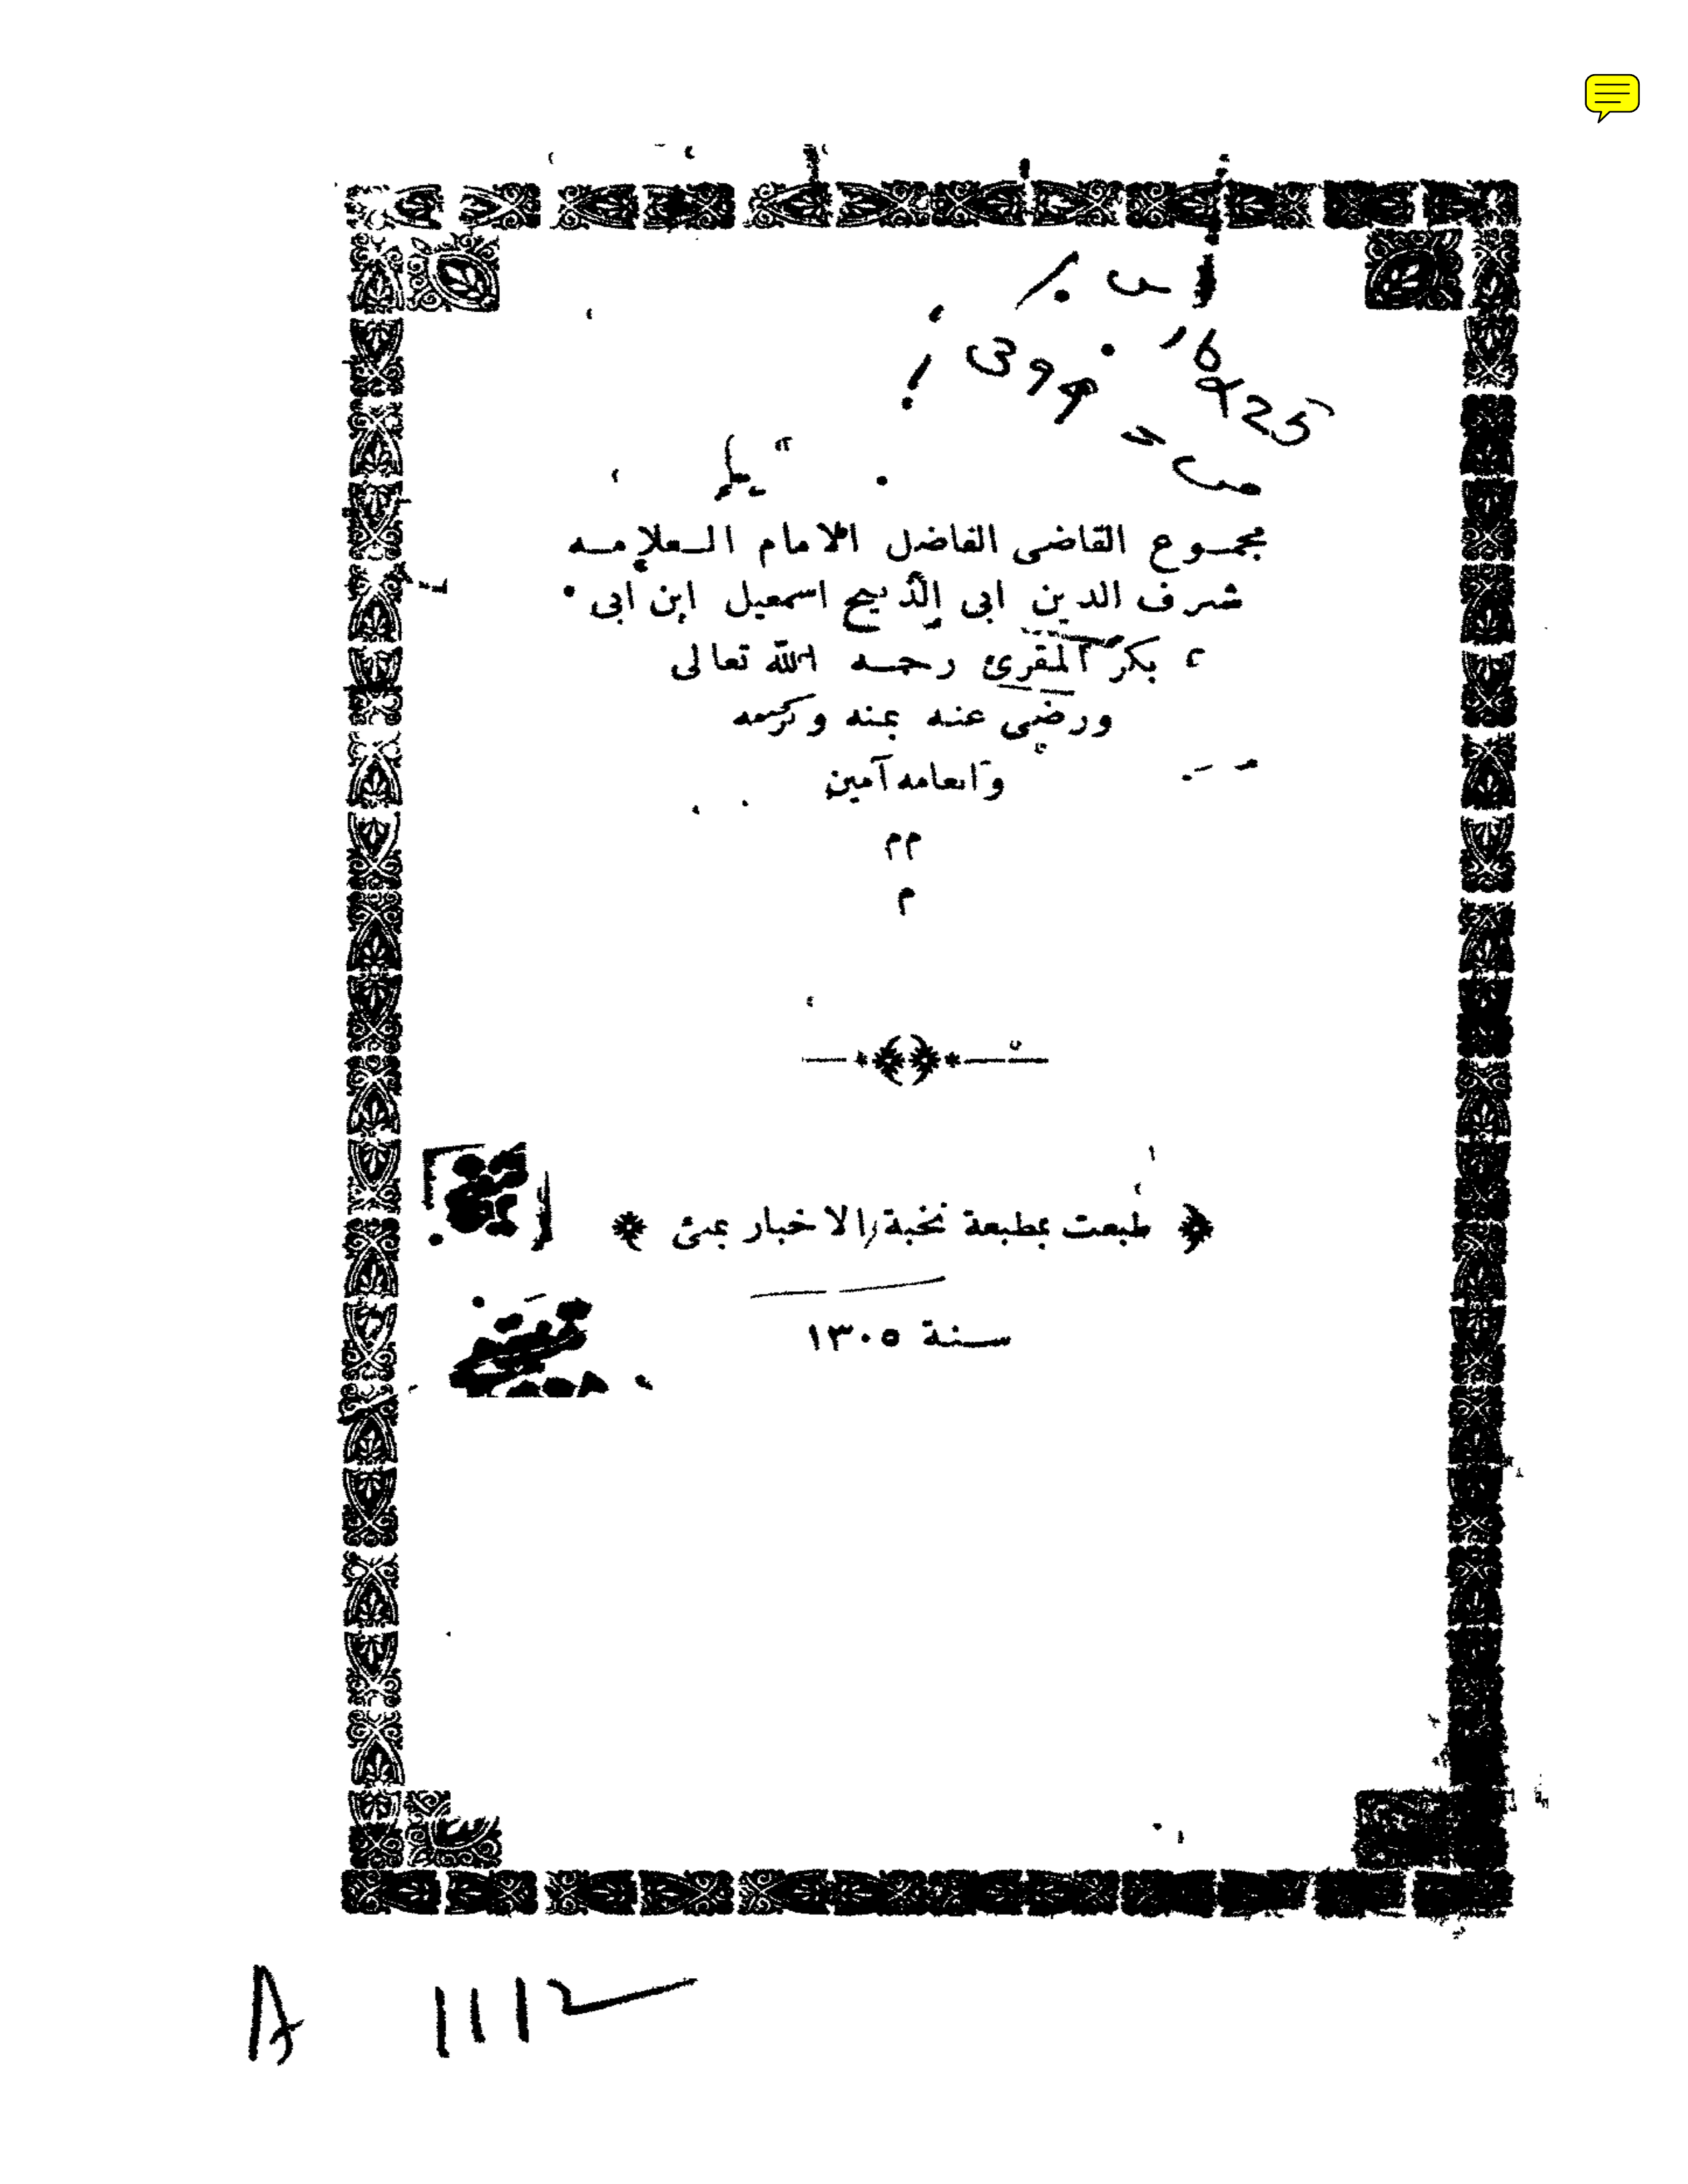 394
16
425
مجموع القاضى الفاضل الامام العلامه
شرف الدين ابى الذبيح اسمعيل ابن ابى
بكر المقرئ رحمه الله تعالى
ورضى عنه بمنه وكرمه
وانعامه آمين
م م
م
طبعت بمطبعة نخبة الاخبار بمبئ
سنة ١٣٠٥
A 1112